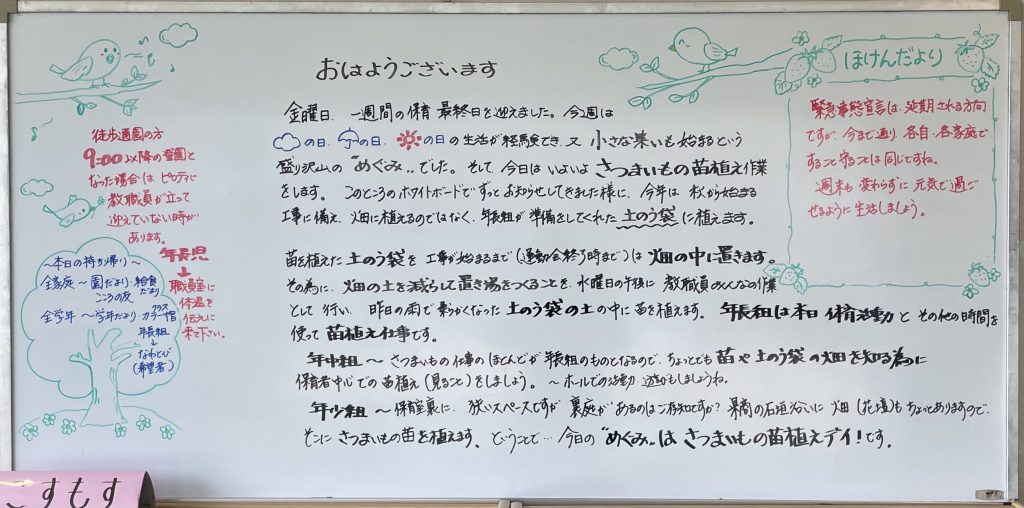 おはようございます
金曜日、一週間の保育 最終日を迎えました。今週は
の日、の日、の日の生活が経験でき、又 小さな集いも始まるという
盛り沢山の "めぐみ" でした。そして 今日は いよいよ さつまいもの苗植え作業
をします。このところの ホワイトボードで ずっと お知らせしてきました様に、今年は 秋から始まる
工事に備え、畑に植えるのではなく、年長組が 準備をしてくれた 土のう袋に植えます。
苗を植えた 土のう袋を 工事が始まるまで(運動会終了時まで)は 畑の中に置きます。
その為に、畑の土を減らして 置き場をつくることを、水曜日の午後に 教職員みんなの作業
として 行い、昨日の雨で 柔らかくなった 土のう袋の土の中に苗を植えます。年長組は本日 保育活動と その他の時間を
使って 苗植え仕事です。
年中組 〜 さつまいもの仕事の ほとんどが 年長組のものとなるので、ちょっとでも 苗や土のう袋の畑を知る為に
保育者中心での苗植え(見ること)をしましょう。〜ホールでの活動・遊びもしましょうね。
年少組 〜 保育室裏に、狭いスペースですが 裏庭が あるのはご存知ですか? 県商の石垣沿いに 畑(花壇)も ちょっとありますので、
そこに さつまいもの苗を植えます。ということで… 今日の "めぐみ" は さつまいもの苗植えデイ!です。
徒歩通園の方
9:00以降の登園と
なった場合は ピロティに
教職員が立って
迎えていない時が
あります。
年長児
↓
職員室に
体温を
伝えに
来て下さい。
〜本日の持ち帰り〜
全家庭〜園だより・給食だより
こころの友
全学年〜学年だより・クラスカラー帽
年長組
↓
なわとび
(希望者)
ほけんだより
緊急事態宣言は、延期される方向
ですが、今まで通り、各自・各家庭で
すること守ることは同じですね。
週末も 変わらずに 元気で過ご
せるように 生活しましょう。
こすもす